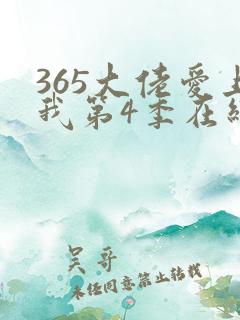 365大佬爱上
我第4季在线
吴哥
未经同意禁止转载